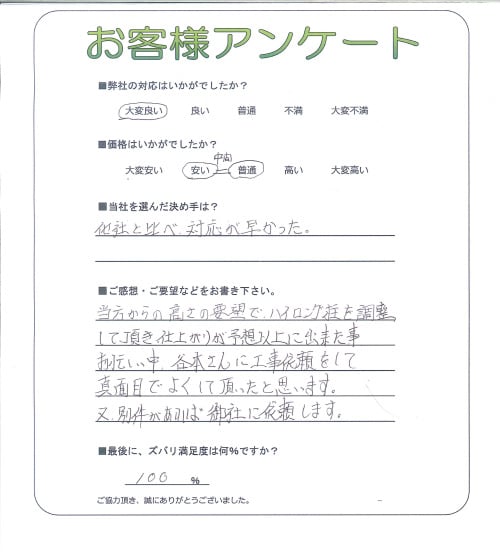 お客様アンケート
■弊社の対応はいかがでしたか？
大変良い 良い 普通 不満 大変不満
■価格はいかがでしたか？
中間
大変安い 安い 普通 高い 大変高い
■当社を選んだ決め手は？
他社と比べ、対応が早かった。
■ご感想・ご要望などをお書き下さい。
当方からの高さの要望で、ハイロング柱を調整
して頂き仕上がりが予想以上に出来た事
お忙しい中、谷本さんに工事依頼をして
真面目でよくして頂ったと思います。
又、別件があれば御社に依頼します。
■最後に、ズバリ満足度は何%ですか？
100 %
ご協力頂き、誠にありがとうございました。